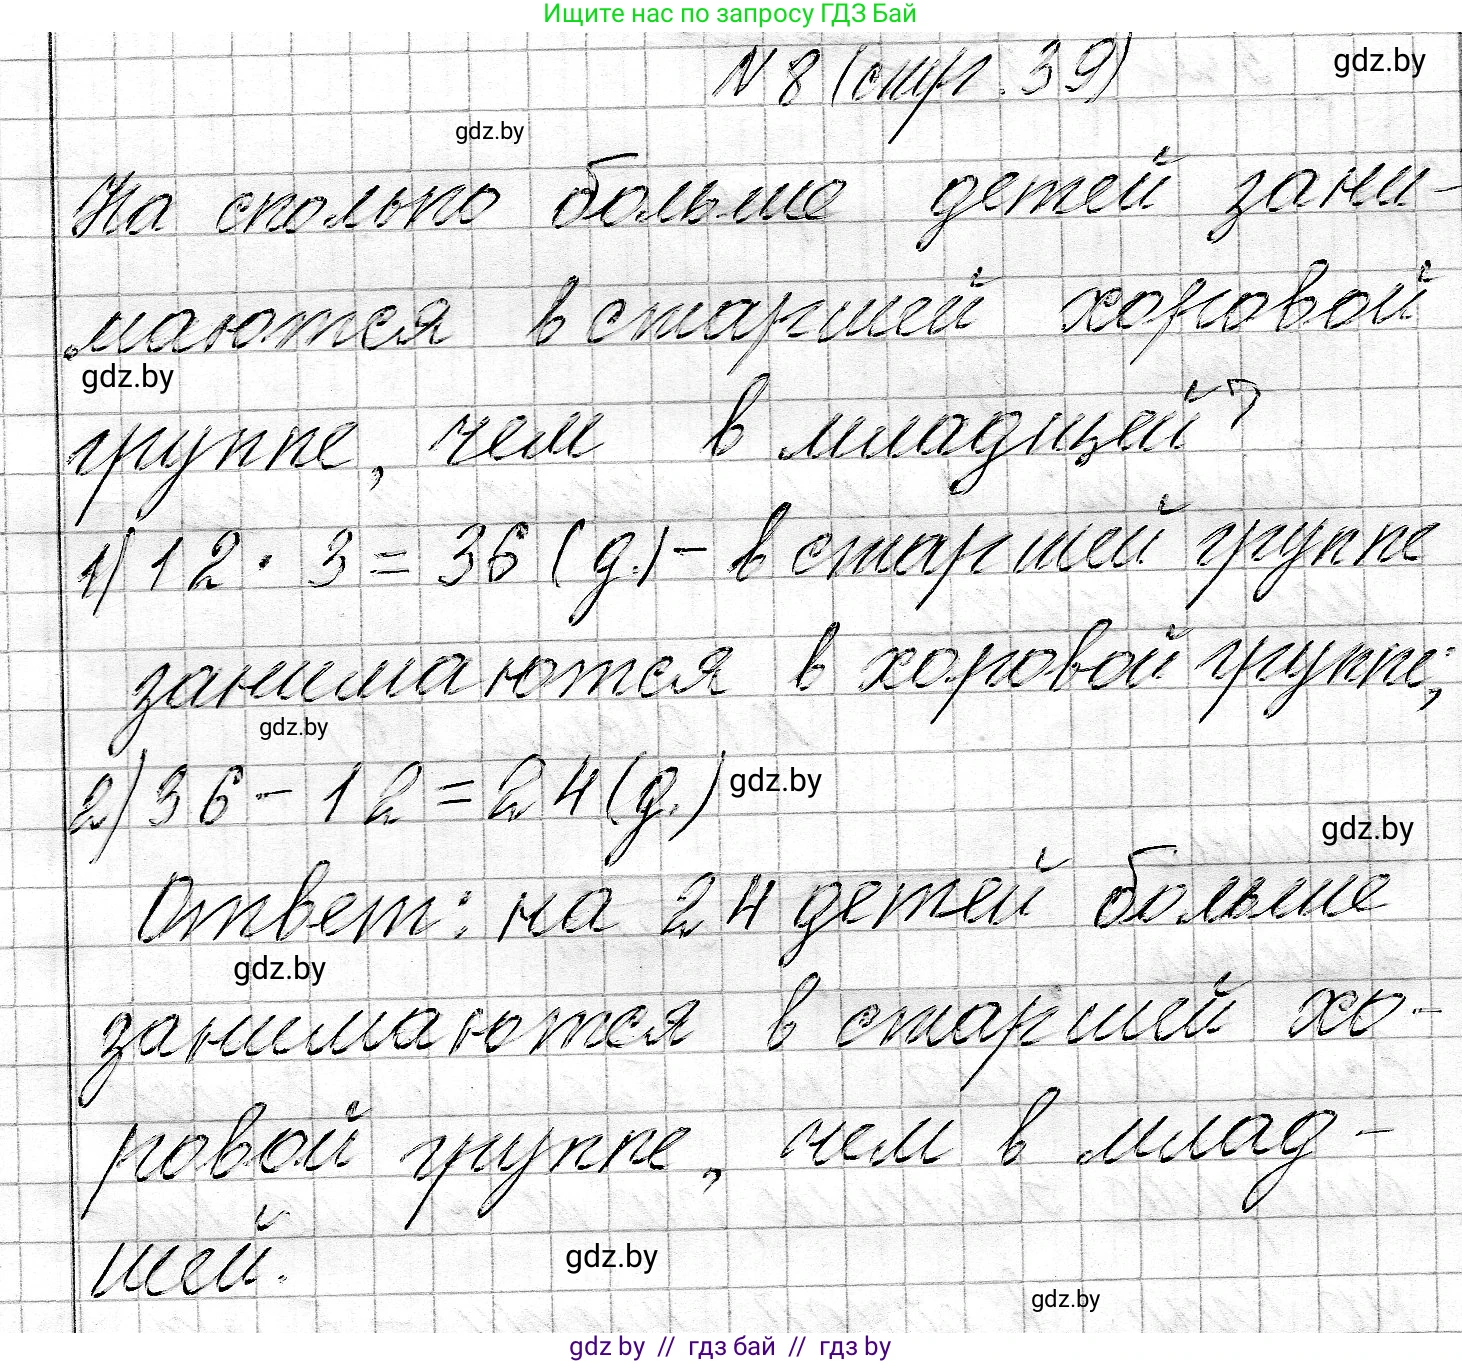 Ищите нас по запросу ГДЗ Бай
N 8 (стр. 39)
gdz.by
gdz.by
На сколько больше детей зани-
маются в старшей хоровой
gdz.by
группе, чем в младшей?
1) 12 · 3 = 36 (д.) - в старшей группе
занимаются в хоровой группе;
gdz.by
2) 36 - 12 = 24 (д.)
gdz.by
gdz.by
Ответ: на 24 детей больше
gdz.by
занимаются в старшей хо-
ровой группе, чем в млад-
шей.
gdz.by
gdz.by
gdz.by // гдз бай // гдз by